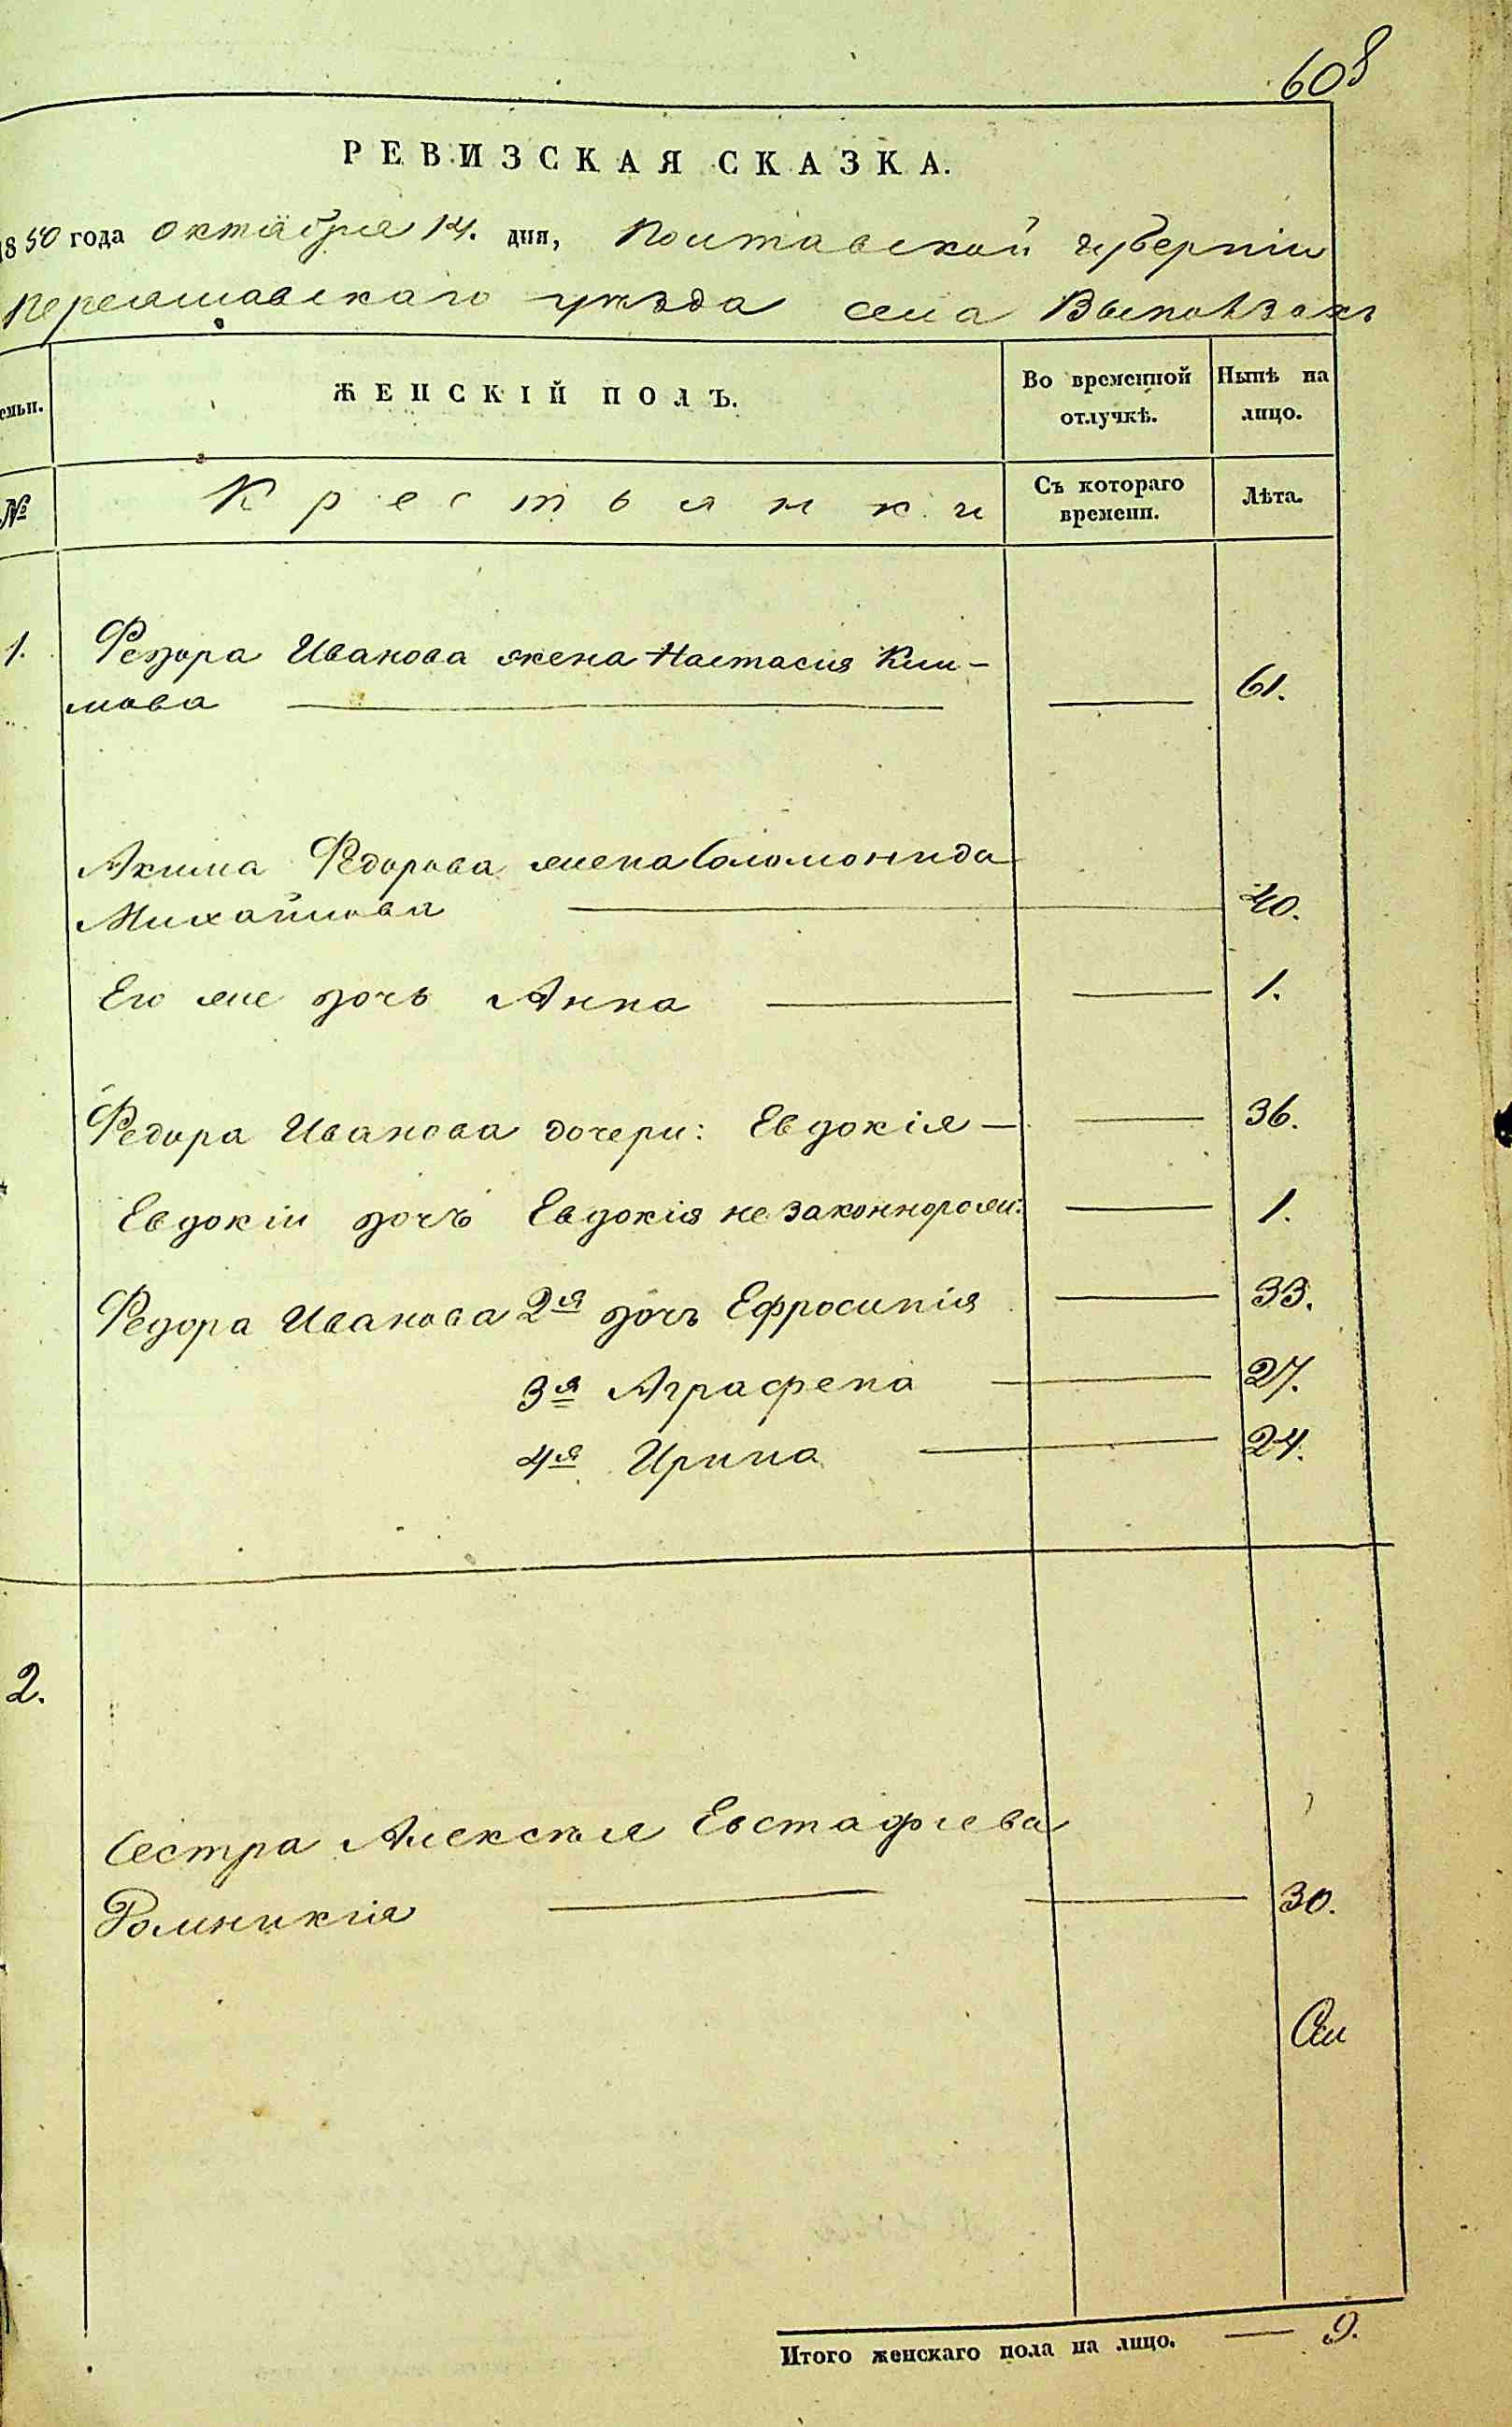 608
РЕВИЗСКАЯ СКАЗКА.
1850 года октября 14. дня, Полтавской губерніи
Переяславскаго уѣзда села Выползокъ
емьи. ЖЕНСКІЙ ПОЛЪ. Во временной отлучкѣ. Нынѣ на лицо.
№ Крестьянки Съ котораго времени. Лѣта.
1. Федора Иванова жена Настасия Кли-
мова — — 61.
Акима Федорова жена Соломонида
Михайлова — 40.
Его же дочь Анна — — 1.
Федора Иванова дочери: Евдокія — — 36.
Евдокіи дочь Евдокія незаконнорож: — 1.
Федора Иванова 2я дочь Ефросинія — 33.
3я Аграфена — 27.
4я Ирина — 24.
2.
Сестра Алексѣя Евстафиева
— — 30.
Итого женскаго пола на лицо. — 9.